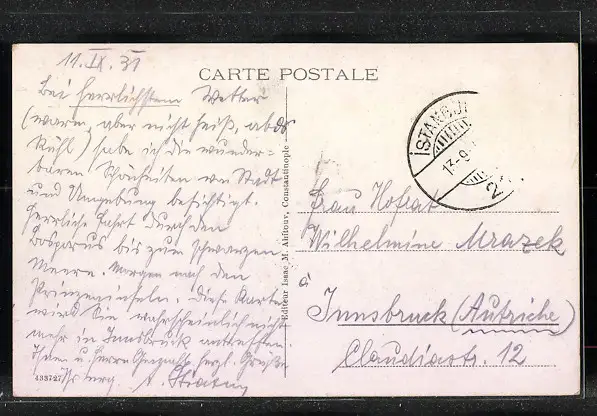 11. IX. 31
CARTE POSTALE
Bei herrlichstem Wetter
(warm, aber nicht heiß, abds
kühl) habe ich die wunder-
baren Schönheiten von Stadt
und Umgebung besichtigt.
Herrliche Fahrt durch den
Bosporus bis zum Schwarzen
Meere. Morgen nach den
Prinzeninseln. Diese Karte
wird Sie wahrscheinlich nicht
mehr in Innsbruck antreffen.
Ihnen u Herrn Gemahl herzl. Grüße
Ihr erg.
433727
Editeur Isaac M. Ahitouv, Constantinople
ISTANBUL
13-9
Frau Hofrat
Wilhelmine Mrazek
à
Innsbruck (Autriche)
Claudiastr. 12